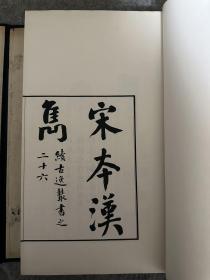 宋本漢
雋
續古逸叢書之
二十六